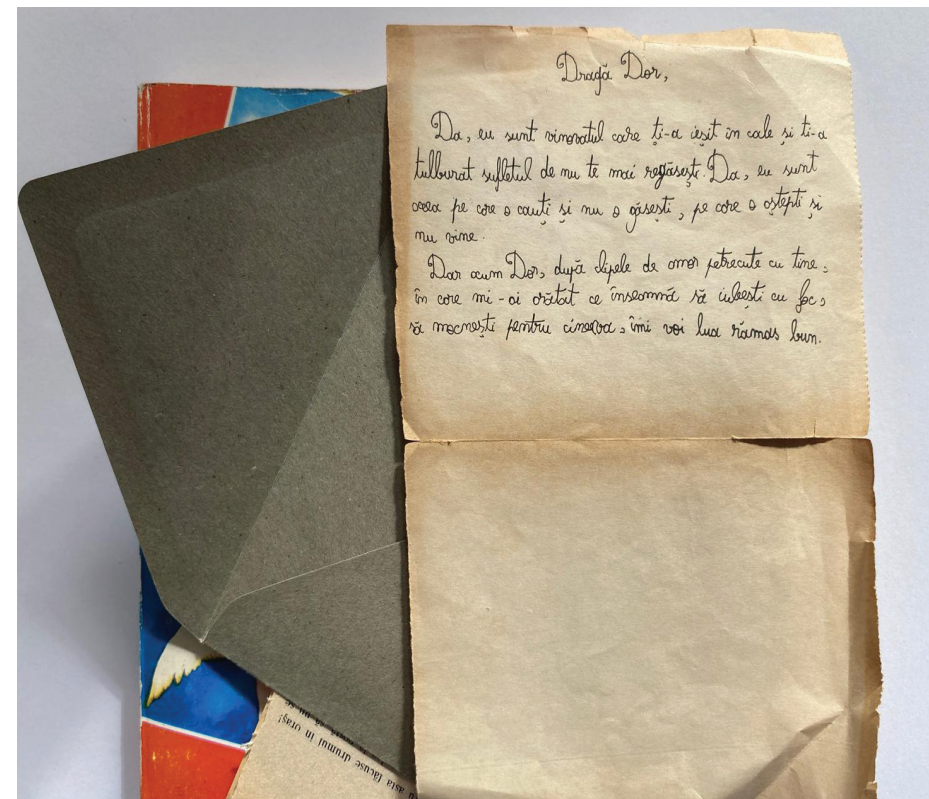 Dragă Dor,
Da, eu sunt vinovatul care ți-a ieșit în cale și ti-a
tulburat sufletul de nu te mai regăsești. Da, eu sunt
acea pe care o cauți și nu o găsești, pe care o aștepti și
nu vine.
Dar acum Dor, după clipele de amor petrecute cu tine,
în care mi-ai arătat ce înseamnă să iubești cu foc,
să mocnești pentru cineva, îmi voi lua rămas bun.
asta făcuse drumul în oraș!